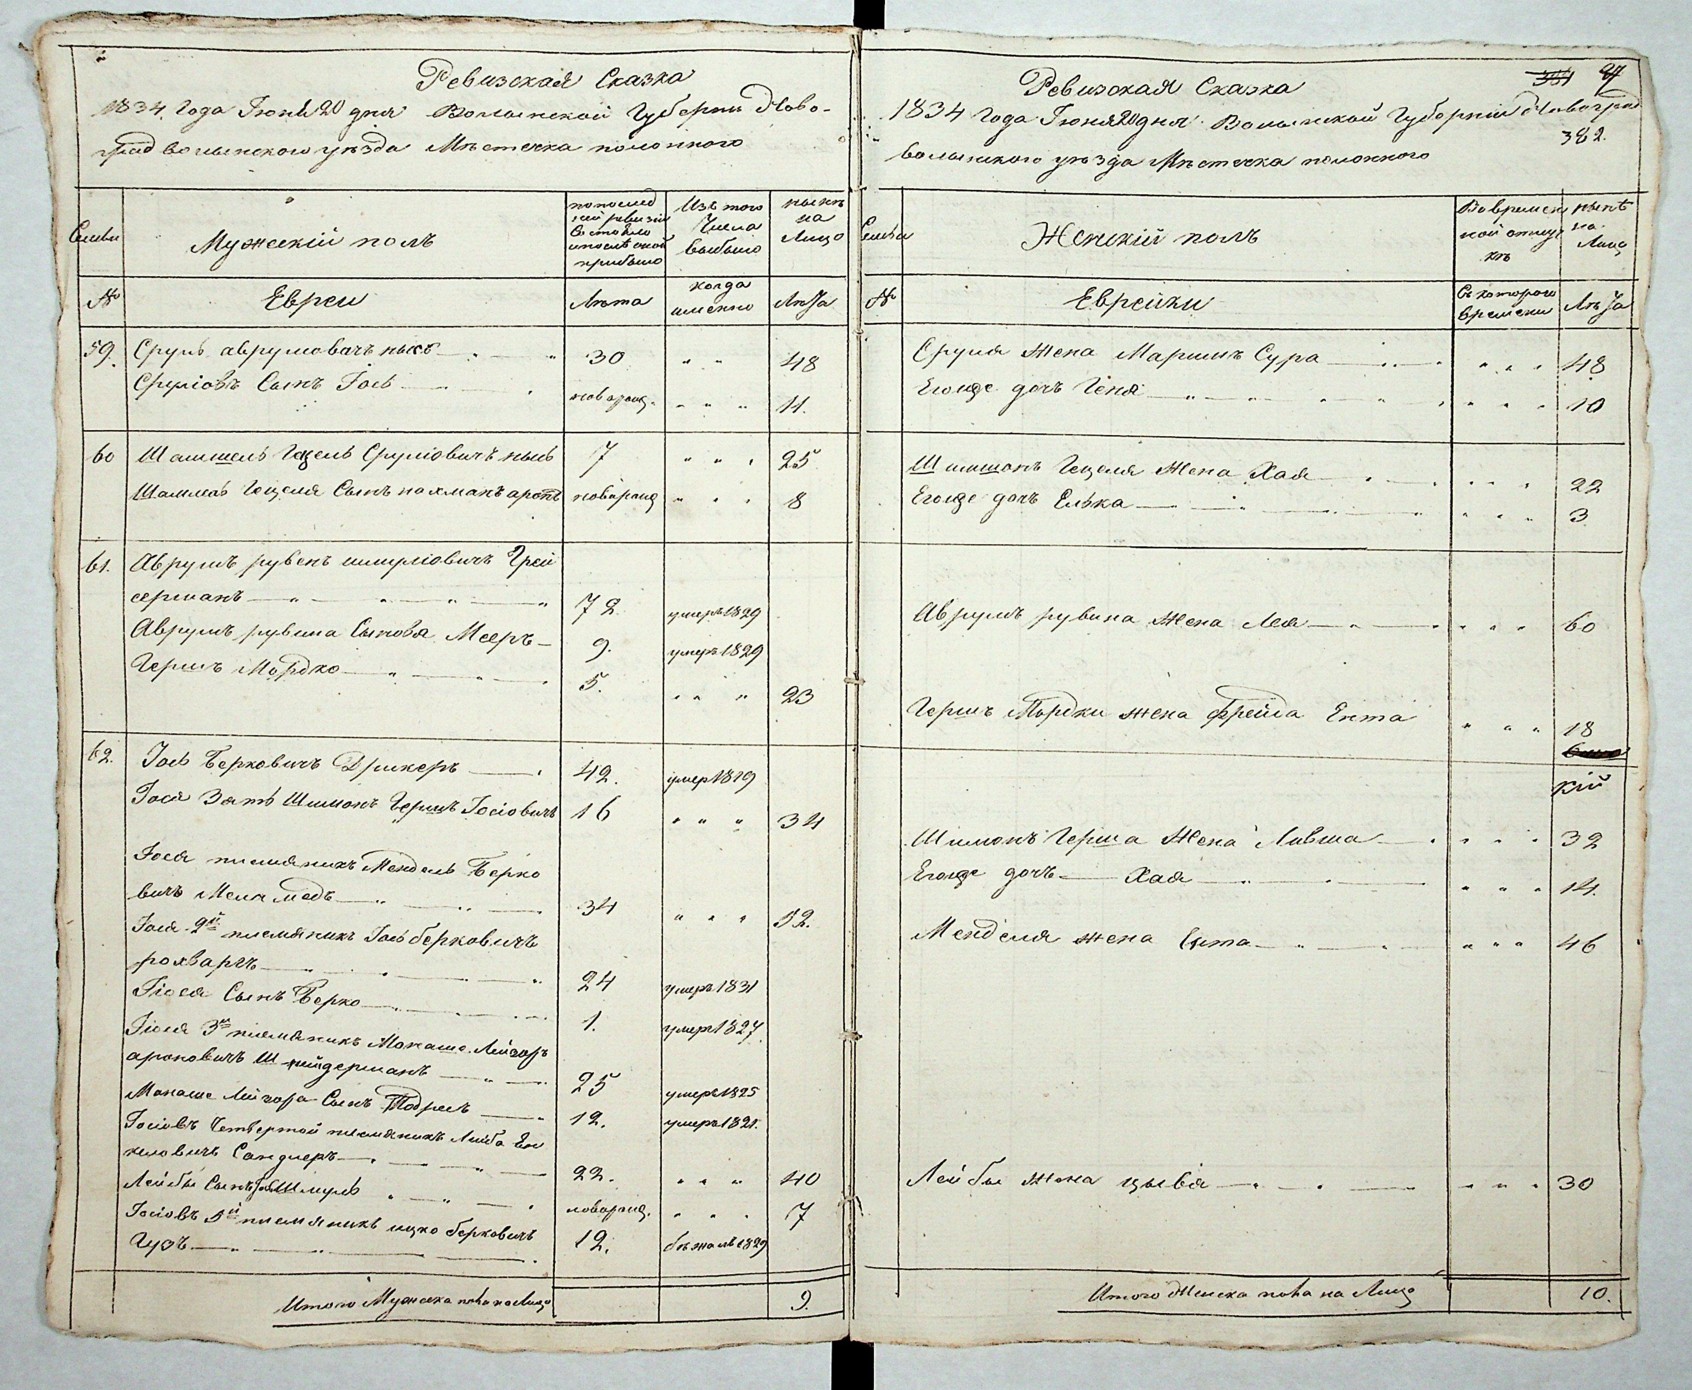 Ревизская Сказка
1834 Года Июня 20 дня Волынской Губернии Ново-
град волынского уезда Мѣстечка полонного
Семьи
Мужескій полъ
по послед
ней ревизіи
Состояло
и после оной
прибыло
Изъ того
Числа
выбыло
нынѣ
на
Лицо
№
Евреи
Лѣта
когда
именно
Лѣта
59. Сруль аврумовичъ 30 " " 48
Сруліовъ Сынъ Іось новорожд. " " " 11.
60 Шамшель Гецель Сруліовичъ 7 " " " 25
Гецеля Сынъ нахманъ новорожд " " " 8
61. Аврумъ рувенъ шмуліовичъ Грей
серманъ 72 умеръ 1829
Аврумъ рувина Сыновя Мееръ 9. умеръ 1829
Гершъ Мордко 5. " " " 23
62. Іось Берковичъ Друкеръ 42. умер 1819
Іося Зять Шимонъ Гершъ Іосіовичъ 16 " " " 34
Іося племяникъ Мендель Берко
вичъ Меламедъ 34 " " " 52.
Іося 2й племяникъ Іось берковичъ
24 умеръ 1831
Іося Сынъ Берко 1. умеръ 1827
Іося 3й племяникъ Манаше Лейзоръ
ароновичъ Шнейдерманъ 25 умеръ 1825
Манаше Лейзора Сынъ 12. умеръ 1821.
Іосіовъ Четвертой племяникъ Лейба Ен
келовичъ Сандлеръ 22. " " " 40
Лейбы Сынъ Шмуль новорожд. " " " 7
Іосіовъ 5й племяникъ ицко берковичъ
Цуръ 12. бѣжалъ 1829
Итого Мужеска пола на Лицо 9.
351 27
Ревизская Сказка
1834 Года Июня 20 дня Волынской Губерніи Новогра
382.
волынского уезда Мѣстечка полонного
Семьи
Женскій полъ
Во времен
ной отлуч
кѣ
нынѣ
на
Лицо
№
Еврейки
Съ которого
времени
Лѣта
Сруля Жена Маримъ Сура " " " 48
Егожде дочъ Геня " " " 10
Шимшонъ Гецеля Жена Хая " " " 22
Егожде дочъ Елька " " " 3
Аврумъ рувина Жена Лея " " " 60
Гершъ Мордки жена Фрейда Ента " " " 18
кій
Шимонъ Герша Жена Ливша " " " 32
Егожде дочъ Хая " " " 14.
Менделя жена Ента " " " 46
Лейбы Жена цывія " " " 30
Итого Женска пола на Лицо 10.